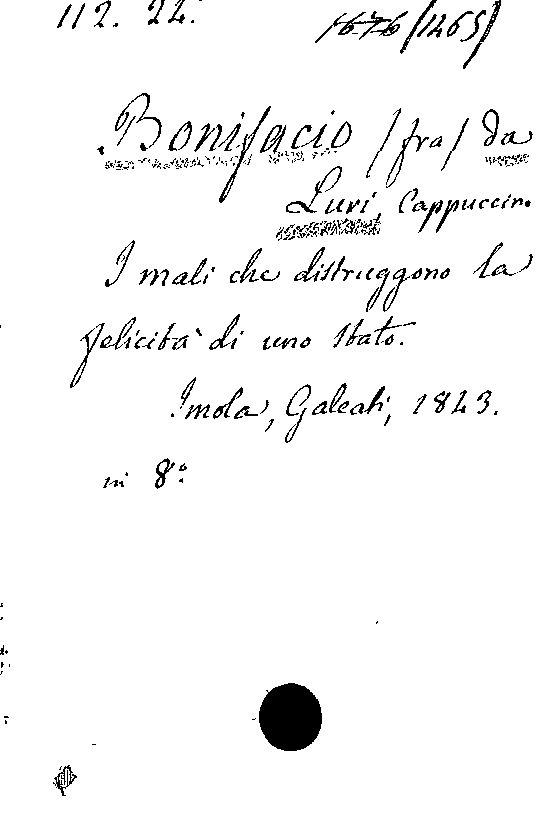 112. 24. 1676 (1465)
Bonifacio (fra) da
Luri, Cappuccin.
I mali che distruggono la
felicità di uno Stato.
Imola, Galeati, 1843.
in 8°